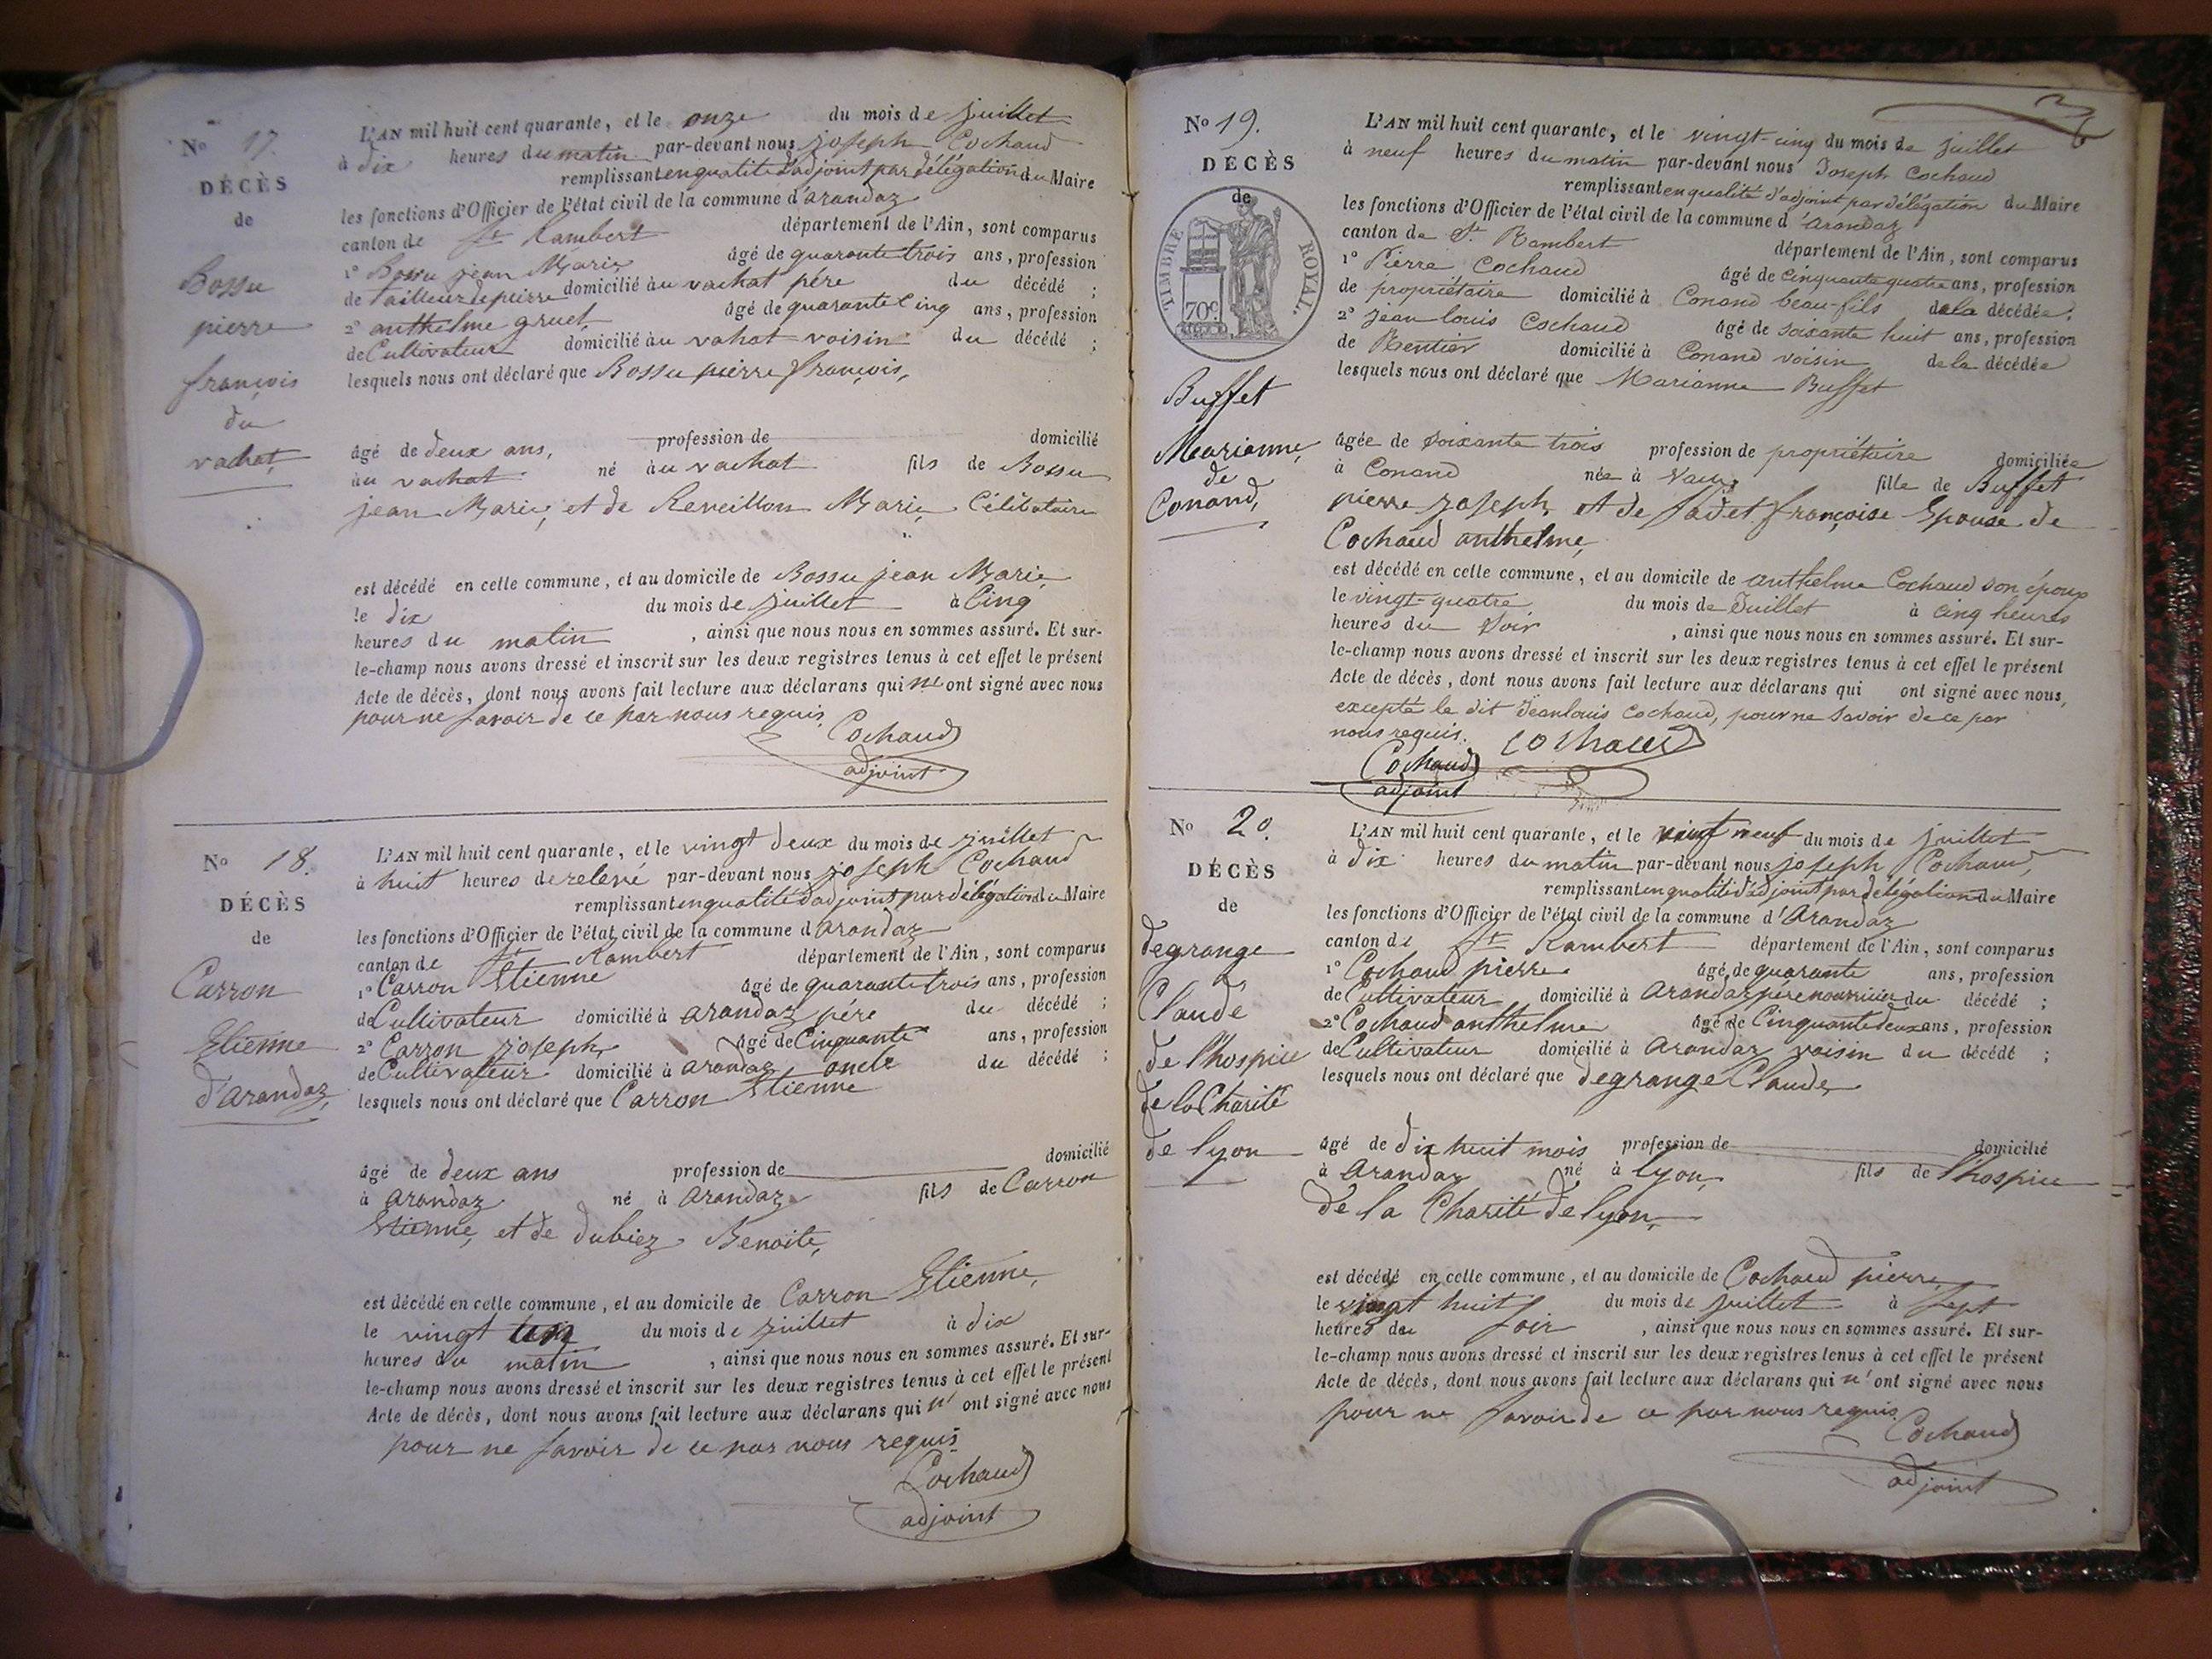 No 17.
DÉCÈS
de
Bossu
pierre
françois
du
vachat
L'AN mil huit cent quarante, et le onze du mois de juillet
à dix heures du matin par-devant nous joseph Cochaud
remplissant en qualité d'adjoint par délégation du Maire
les fonctions d'Officier de l'état civil de la commune d'arandaz
canton de St Rambert département de l'Ain, sont comparus
1o Bossu jean Marie âgé de quarante trois ans, profession
de tailleur de pierre domicilié au vachat pére du décédé ;
2o anthelme gruet âgé de quarante Cinq ans, profession
de Cultivateur domicilié au vahat voisin du décédé ;
lesquels nous ont déclaré que Bossu pierre françois,
âgé de deux ans, profession de domicilié
au vachat né au vachat fils de Bossu
jean Marie, et de Reveillon Marie Célibataire
est décédé en cette commune, et au domicile de Bossu jean Marie
le dix du mois de juillet à Cinq
heures du matin , ainsi que nous nous en sommes assuré. Et sur-
le-champ nous avons dressé et inscrit sur les deux registres tenus à cet effet le présent
Acte de décès, dont nous avons fait lecture aux déclarans qui ne ont signé avec nous
pour ne savoir de ce par nous requis
Cochaud
adjoint
No 18.
DÉCÈS
de
Carron
Etienne
d'arandaz
L'AN mil huit cent quarante, et le vingt deux du mois de juillet
à huit heures de relevé par-devant nous joseph Cochaud
remplissant en qualité d'adjoint par délégation du Maire
les fonctions d'Officier de l'état civil de la commune d arandaz
canton de St Rambert département de l'Ain, sont comparus
1o Carron Etienne âgé de quarante trois ans, profession
de Cultivateur domicilié à arandaz pére du décédé ;
2o Carron joseph âgé de Cinquante ans, profession
de Cultivateur domicilié à arandaz oncle du décédé ;
lesquels nous ont déclaré que Carron Etienne
âgé de deux ans profession de domicilié
à arandaz né à arandaz fils de Carron
Etienne, et de dubiez Benoite,
est décédé en cette commune, et au domicile de Carron Etienne,
le vingt un du mois de juillet à dix
heures du matin , ainsi que nous nous en sommes assuré. Et sur-
le-champ nous avons dressé et inscrit sur les deux registres tenus à cet effet le présent
Acte de décès, dont nous avons fait lecture aux déclarans qui n' ont signé avec nous
pour ne savoir de ce par nous requis
Cochaud
adjoint
No 19.
DÉCÈS
de
TIMBRE ROYAL
70c.
Buffet
Marianne,
de
Conand,
L'AN mil huit cent quarante, et le vingt-cinq du mois de juillet
à neuf heures du matin par-devant nous Joseph Cochaud
remplissant en qualité d'adjoint par délégation du Maire
les fonctions d'Officier de l'état civil de la commune d'arandaz
canton de St Rambert département de l'Ain, sont comparus
1o Pierre Cochaud âgé de cinquante quatre ans, profession
de propriétaire domicilié à Conand beau-fils de la décédée ;
2o jean louis Cochaud âgé de soixante huit ans, profession
de Rentier domicilié à Conand voisin de la décédée
lesquels nous ont déclaré que Marianne Buffet
âgée de soixante trois profession de propriétaire domiciliée
à Conand née à Vaux fille de Buffet
pierre joseph, et de fadet françoise Epouse de
Cochaud anthelme,
est décédé en cette commune, et au domicile de anthelme Cochaud son époux
le vingt-quatre du mois de Juillet à cinq heures
heures du Soir , ainsi que nous nous en sommes assuré. Et sur-
le-champ nous avons dressé et inscrit sur les deux registres tenus à cet effet le présent
Acte de décès, dont nous avons fait lecture aux déclarans qui ont signé avec nous,
excepté le dit Jean louis Cochaud, pour ne savoir de ce par
nous requis.
Cochaud
Cochaud
adjoint
No 20.
DÉCÈS
de
degrange
Claude
de l'hospice
de la Charité
de lyon
L'AN mil huit cent quarante, et le vint neuf du mois de juillet
à dix heures du matin par-devant nous joseph Cochaud,
remplissant en qualité d'adjoint par délégation du Maire
les fonctions d'Officier de l'état civil de la commune d'arandaz
canton de St Rambert département de l'Ain, sont comparus
1o Cochaud pierre âgé de quarante ans, profession
de Cultivateur domicilié à arandaz pére nourricier du décédé ;
2o Cochaud anthelme âgé de Cinquante deux ans, profession
de Cultivateur domicilié à arandaz voisin du décédé ;
lesquels nous ont déclaré que degrange Claude,
âgé de dix huit mois profession de domicilié
à arandaz né à lyon, fils de l'hospice
de la Charité de lyon,
est décédé en cette commune, et au domicile de Cochaud pierre
le vingt huit du mois de juillet à sept
heures du soir , ainsi que nous nous en sommes assuré. Et sur-
le-champ nous avons dressé et inscrit sur les deux registres tenus à cet effet le présent
Acte de décès, dont nous avons fait lecture aux déclarans qui n' ont signé avec nous
pour ne savoir de ce par nous requis
Cochaud
adjoint